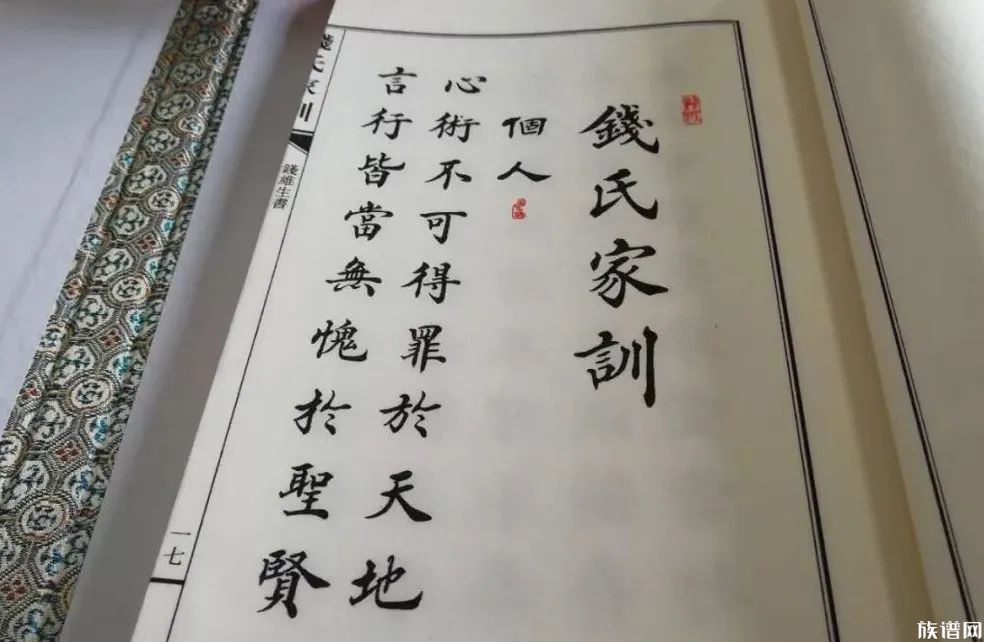 錢氏家訓
個人
心術不可得罪於天地
言行皆當無愧於聖賢
錢氏家訓
錢維生書
一七
族谱网